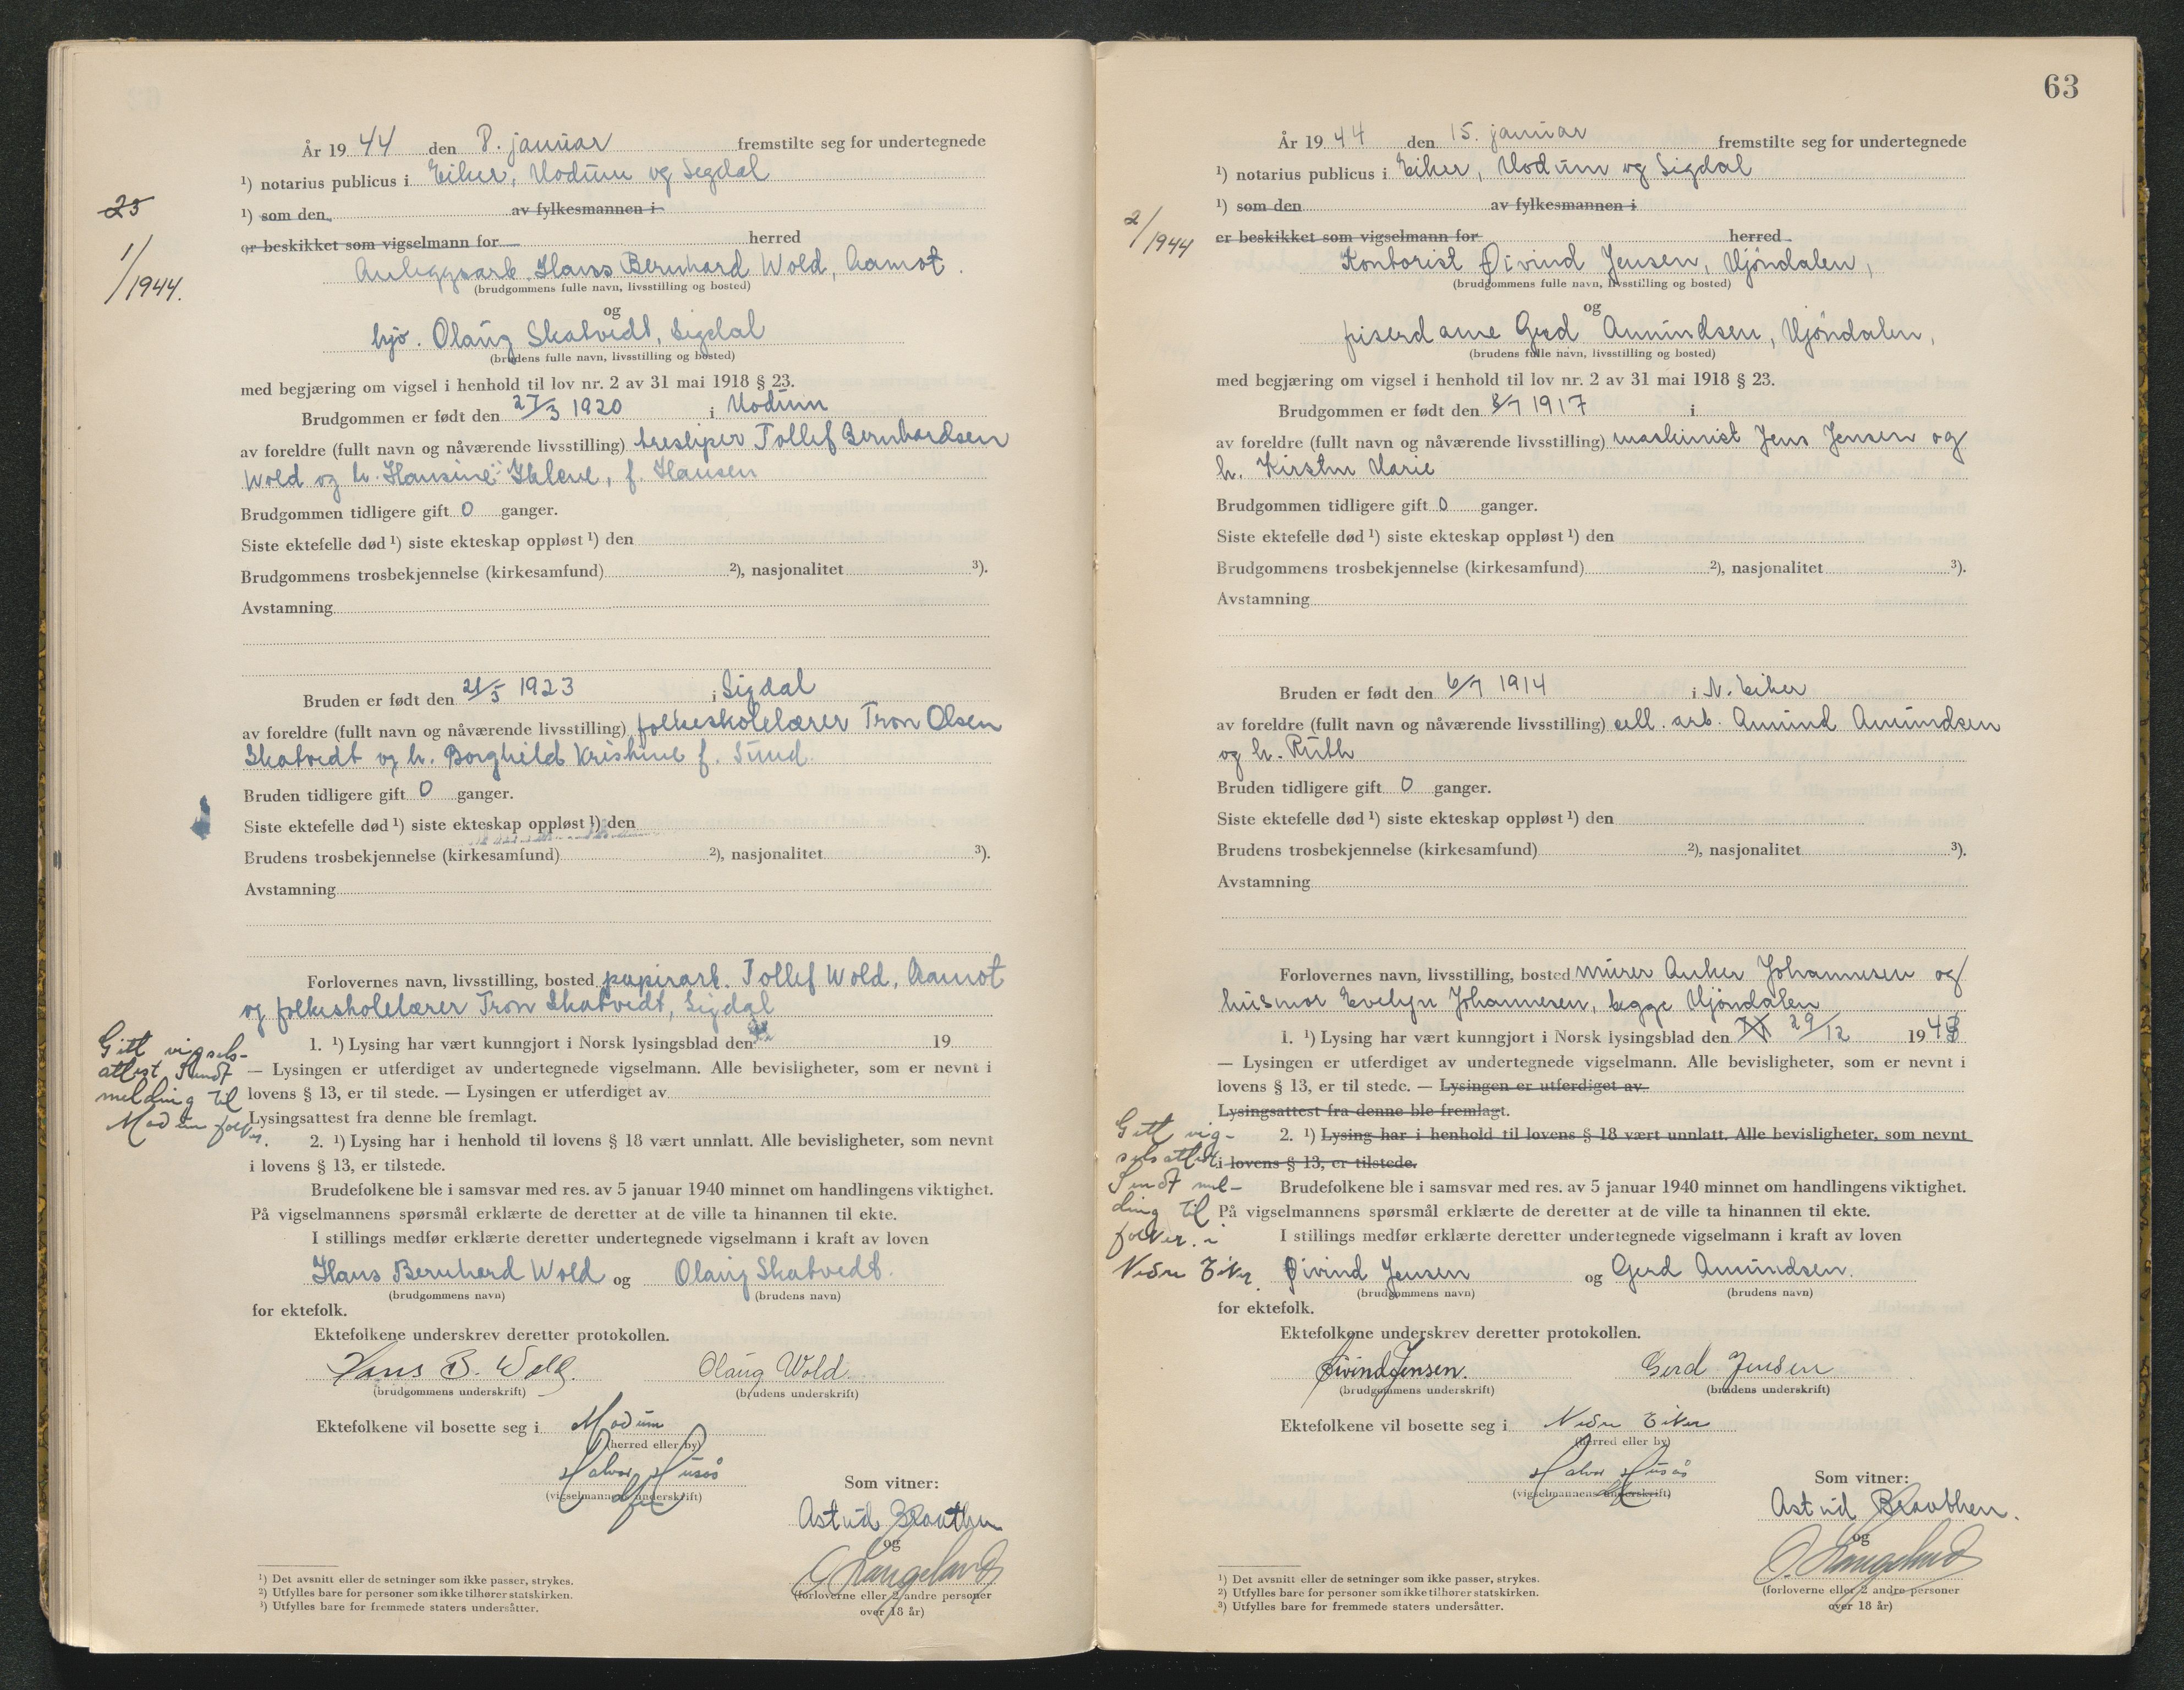 År 1944 den 8. januar fremstilte seg for undertegnede
¹) notarius publicus i Eiker, Modum og Sigdal
¹) som den av fylkesmannen i
er beskikket som vigselmann for herred
25
1/1944.
Anleggsarb. Hans Bernhard Wold, Aamot.
(brudgommens fulle navn, livsstilling og bosted)
og
hjv. Olaug Skatvedt, Sigdal
(brudens fulle navn, livsstilling og bosted)
med begjæring om vigsel i henhold til lov nr. 2 av 31 mai 1918 § 23.
Brudgommen er født den 27/3 1920 i Modum
av foreldre (fullt navn og nåværende livsstilling) tresliper Tollef Bernhardsen
Wold og h. Hansine Helene, f. Hansen
Brudgommen tidligere gift 0 ganger.
Siste ektefelle død ¹) siste ekteskap oppløst ¹) den
Brudgommens trosbekjennelse (kirkesamfund) ²), nasjonalitet ³).
Avstamning
Bruden er født den 21/5 1923 i Sigdal
av foreldre (fullt navn og nåværende livsstilling) folkeskolelærer Tron Olsen
Skatvedt og h. Borghild Kristine f. Sund.
Bruden tidligere gift 0 ganger.
Siste ektefelle død ¹) siste ekteskap oppløst ¹) den
Brudens trosbekjennelse (kirkesamfund) ²), nasjonalitet ³).
Avstamning
Forlovernes navn, livsstilling, bosted papirarb. Tollef Wold, Aamot
og folkeskolelærer Tron Skatvedt, Sigdal
1. ¹) Lysing har vært kunngjort i Norsk lysingsblad den 19
— Lysingen er utferdiget av undertegnede vigselmann. Alle bevisligheter, som er nevnt i
lovens § 13, er til stede. — Lysingen er utferdiget av
Lysingsattest fra denne ble fremlagt.
Gitt vigsels-
attest. Sendt
melding til
Modum folker.
2. ¹) Lysing har i henhold til lovens § 18 vært unnlatt. Alle bevisligheter, som nevnt
i lovens § 13, er tilstede.
Brudefolkene ble i samsvar med res. av 5 januar 1940 minnet om handlingens viktighet.
På vigselmannens spørsmål erklærte de deretter at de ville ta hinannen til ekte.
I stillings medfør erklærte deretter undertegnede vigselmann i kraft av loven
Hans Bernhard Wold og Olaug Skatvedt.
(brudgommens navn) (brudens navn)
for ektefolk.
Ektefolkene underskrev deretter protokollen.
Hans B. Wold. Olaug Wold.
(brudgommens underskrift) (brudens underskrift)
Ektefolkene vil bosette seg i Modum
(herred eller by)
Halvor Husås
(vigselmannens underskrift)
Som vitner:
Astrid Brauthen
og
Langeland
(forloverne eller 2 andre personer
over 18 år)
¹) Det avsnitt eller de setninger som ikke passer, strykes.
²) Utfylles bare for personer som ikke tilhører statskirken.
³) Utfylles bare for fremmede staters undersåtter.
63
År 1944 den 15. januar fremstilte seg for undertegnede
¹) notarius publicus i Eiker, Modum og Sigdal
¹) som den av fylkesmannen i
er beskikket som vigselmann for herred
2/1944
Kontorist Øivind Jensen, Mjöndalen,
(brudgommens fulle navn, livsstilling og bosted)
og
friserdame Gerd Amundsen, Mjöndalen,
(brudens fulle navn, livsstilling og bosted)
med begjæring om vigsel i henhold til lov nr. 2 av 31 mai 1918 § 23.
Brudgommen er født den 8/7 1917 i
av foreldre (fullt navn og nåværende livsstilling) maskinist Jens Jensen og
h. Kirstin Marie
Brudgommen tidligere gift 0 ganger.
Siste ektefelle død ¹) siste ekteskap oppløst ¹) den
Brudgommens trosbekjennelse (kirkesamfund) ²), nasjonalitet ³).
Avstamning
Bruden er født den 6/7 1914 i N. Eiker
av foreldre (fullt navn og nåværende livsstilling) cell. arb. Amund Amundsen
og h. Ruth
Bruden tidligere gift 0 ganger.
Siste ektefelle død ¹) siste ekteskap oppløst ¹) den
Brudens trosbekjennelse (kirkesamfund) ²), nasjonalitet ³).
Avstamning
Forlovernes navn, livsstilling, bosted murer Anker Johannesen og
husmor Evelyn Johannesen, begge Mjöndalen
1. ¹) Lysing har vært kunngjort i Norsk lysingsblad den 29/12 1943
— Lysingen er utferdiget av undertegnede vigselmann. Alle bevisligheter, som er nevnt i
lovens § 13, er til stede. — Lysingen er utferdiget av
Lysingsattest fra denne ble fremlagt.
Gitt vig-
selsattest.
Sendt mel-
ding til
folker. i
Nedre Eiker.
2. ¹) Lysing har i henhold til lovens § 18 vært unnlatt. Alle bevisligheter, som nevnt
i lovens § 13, er tilstede.
Brudefolkene ble i samsvar med res. av 5 januar 1940 minnet om handlingens viktighet.
På vigselmannens spørsmål erklærte de deretter at de ville ta hinannen til ekte.
I stillings medfør erklærte deretter undertegnede vigselmann i kraft av loven
Øivind Jensen og Gerd Amundsen.
(brudgommens navn) (brudens navn)
for ektefolk.
Ektefolkene underskrev deretter protokollen.
Øivind Jensen. Gerd Jensen
(brudgommens underskrift) (brudens underskrift)
Ektefolkene vil bosette seg i Nedre Eiker
(herred eller by)
Halvor Husås
(vigselmannens underskrift)
Som vitner:
Astrid Brauthen.
og
Langeland
(forloverne eller 2 andre personer
over 18 år)
¹) Det avsnitt eller de setninger som ikke passer, strykes.
²) Utfylles bare for personer som ikke tilhører statskirken.
³) Utfylles bare for fremmede staters undersåtter.